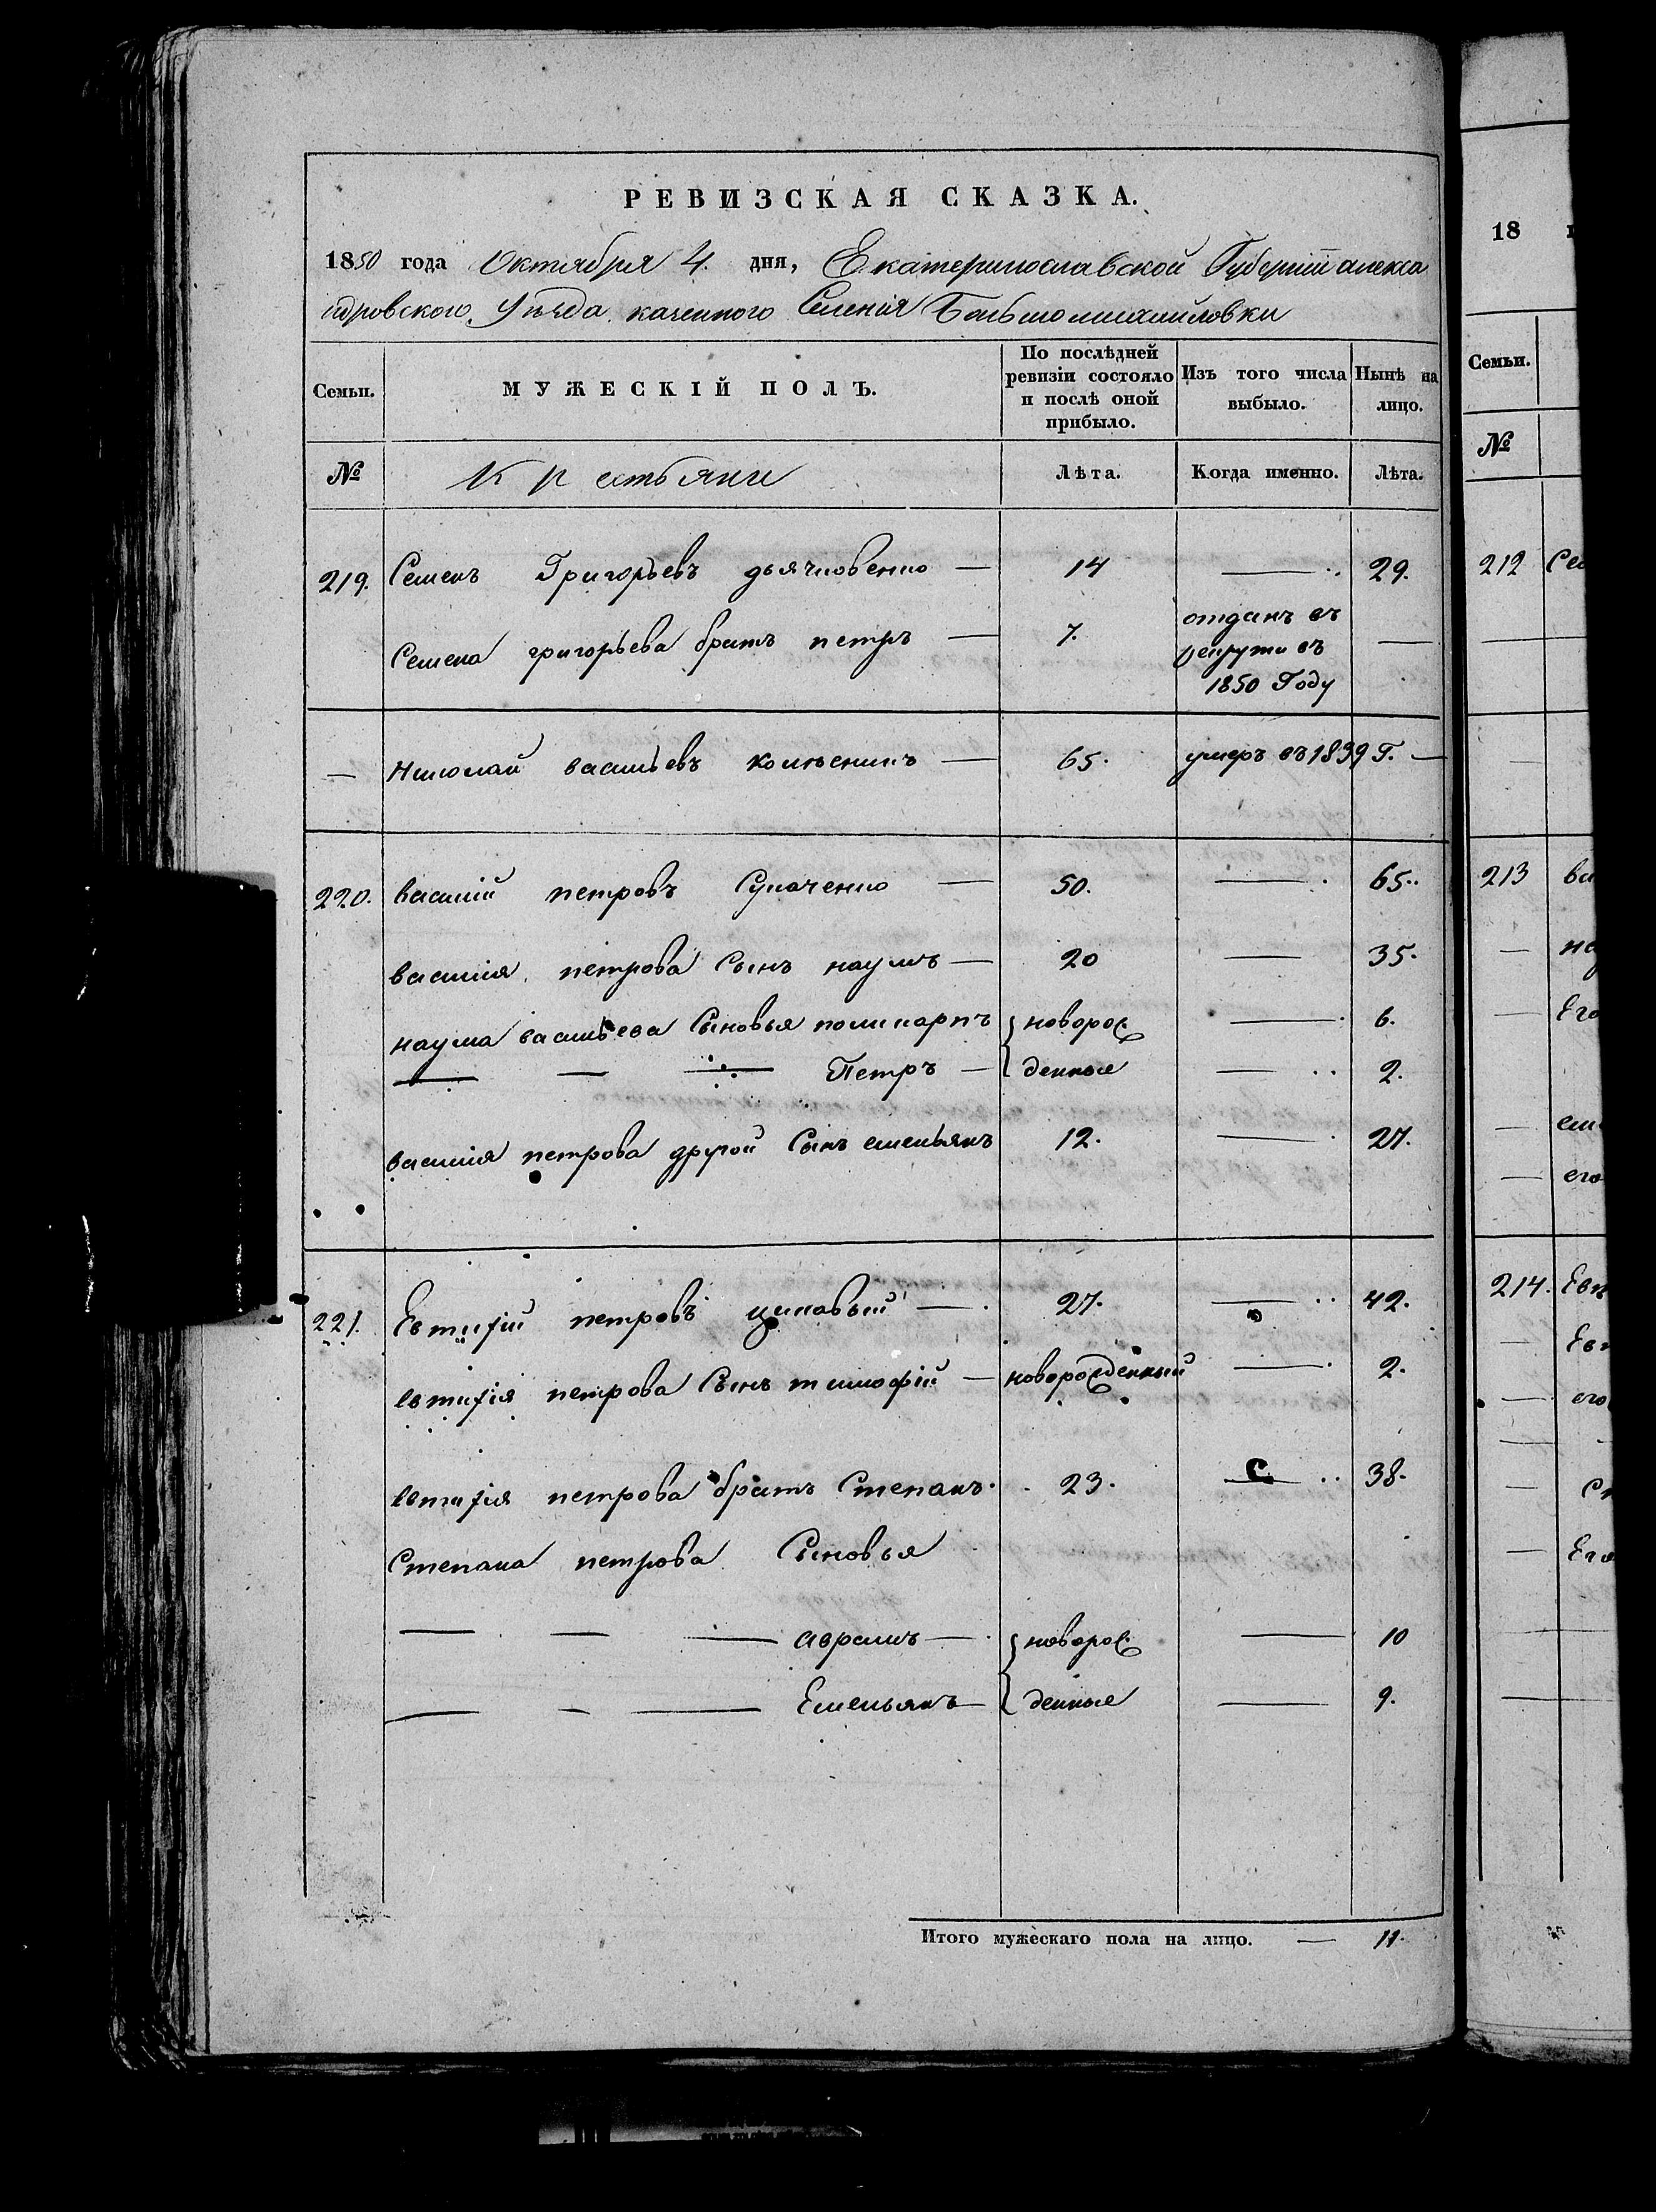 РЕВИЗСКАЯ СКАЗКА.
1850 года Октября 4. дня, Екатеринославской Губерніи алекса
ндровского Уѣзда казенного Селенія Большомихайловки
Семьи. МУЖЕСКІЙ ПОЛЪ. По послѣдней ревизіи состояло и послѣ оной прибыло. Изъ того числа выбыло. Нынѣ на лицо.
№ Крестьяни Лѣта. Когда именно. Лѣта.
219. Семенъ Григорьевъ дьяченко — 14 — 29.
Семена григорьева братъ петръ — 7. отданъ въ рекруты въ 1850 Году —
— Николай васильевъ колѣсникъ — 65. умеръ въ 1839 Г. —
220. василій петровъ Супаченко — 50. — 65.
василія петрова Сынъ наумъ — 20 — 35.
наума васильева Сыновья поликарпъ новорож — 6.
— — — Петръ — денные — 2.
василія петрова другой Сынъ емельянъ 12. — 27.
221. Евтифій петровъ цикавый — 27. — 42.
евтифія петрова Сынъ тимофій — новорожденный — 2.
евтифія петрова братъ Степанъ. 23. — 38.
Степана петрова Сыновья
— — — аврамъ — новорож — 10
— — — Емельянъ — денные — 9.
Итого мужескаго пола на лицо. — 11.
18
Семьи.
№
212
213
214.